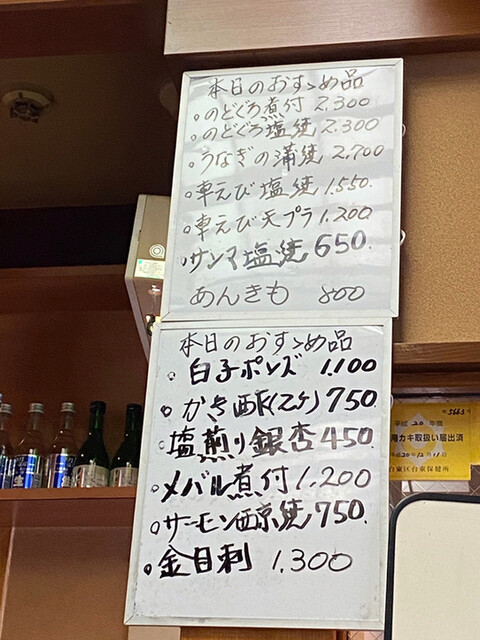 本日のおすゝめ品
。のどぐろ煮付 2.300
。のどぐろ塩焼 2.300
。うなぎの蒲焼 2,700
。車えび塩焼 1.550.
。車えび天プラ 1.200
。サンマ塩焼 650.
あんきも 800
本日のおすゝめ品
。白子ポンズ 1.100
。かき酢(2ケ) 750
。塩煎り銀杏 450.
。メバル煮付 1,200
。サーモン西京焼 750.
。金目刺 1.300
5663
平成 20 年度
カキ取扱い届出済
平成20年12月11日
台東区台東保健所